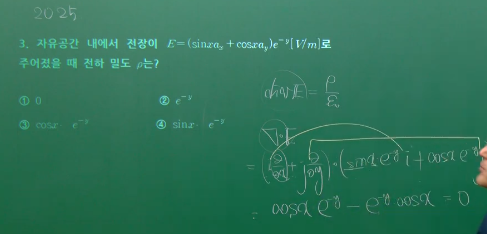 2025
3. 자유공간 내에서 전장이 E=(sinxaₓ+cosxaᵧ)e⁻ʸ[V/m]로
주어졌을 때 전하 밀도 ρ는?
① 0 ② e⁻ʸ
③ cosx e⁻ʸ ④ sinx e⁻ʸ
divE = ρ/ε₀
∇·E
= (∂/∂x i + j ∂/∂y)·(sinx e⁻ʸ i + cosx e⁻ʸ
= cosx e⁻ʸ - e⁻ʸ cosx = 0